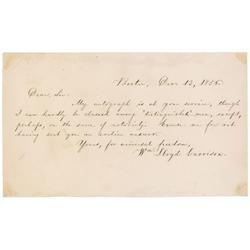 Boston, Dec. 13, 1856.
Dear Sir—
My autograph is at your service, though
I can hardly be classed among "distinguished" men, except,
perhaps, on the score of notoriety. Excuse me for not
having sent you an earlier answer.
Yours, for universal freedom,
Wm. Lloyd Garrison.